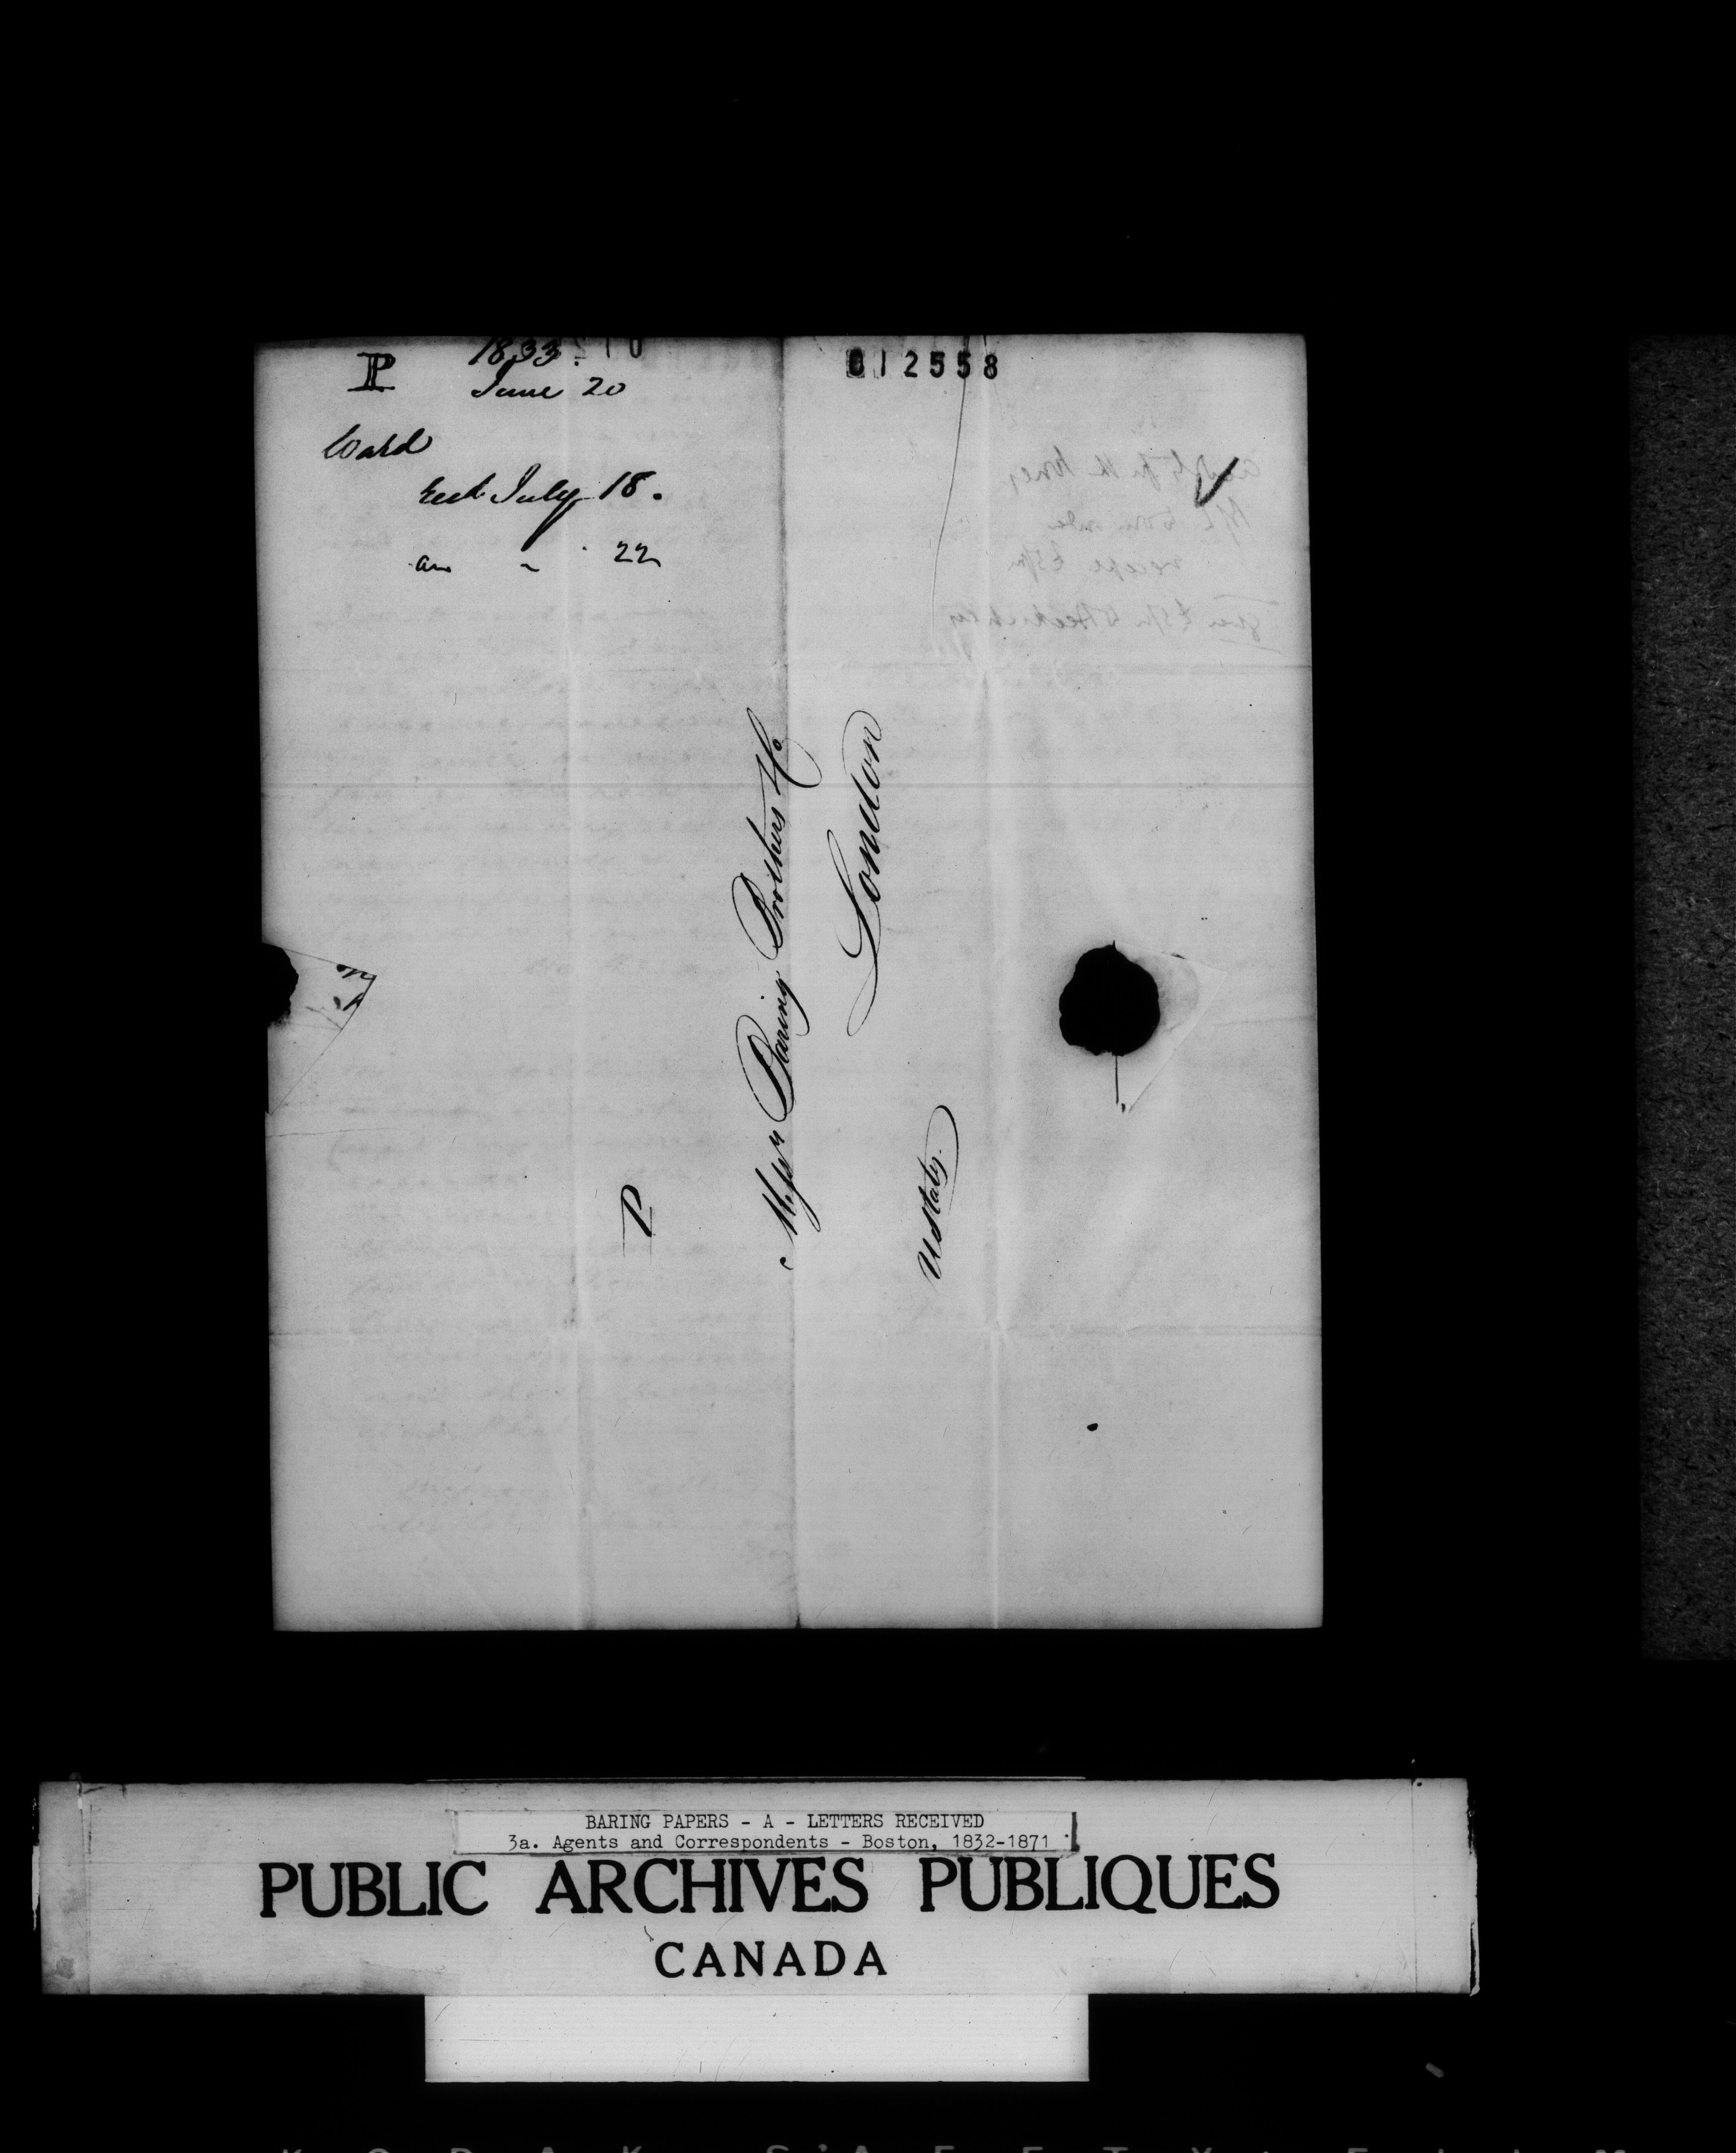 P
1833.
June 20
012558
Ward
Recd July 18.
an - 22
Messrs Baring Brothers & Co
London
P
BARING PAPERS - A - LETTERS RECEIVED
3a. Agents and Correspondents - Boston, 1832-1871
PUBLIC ARCHIVES PUBLIQUES
CANADA